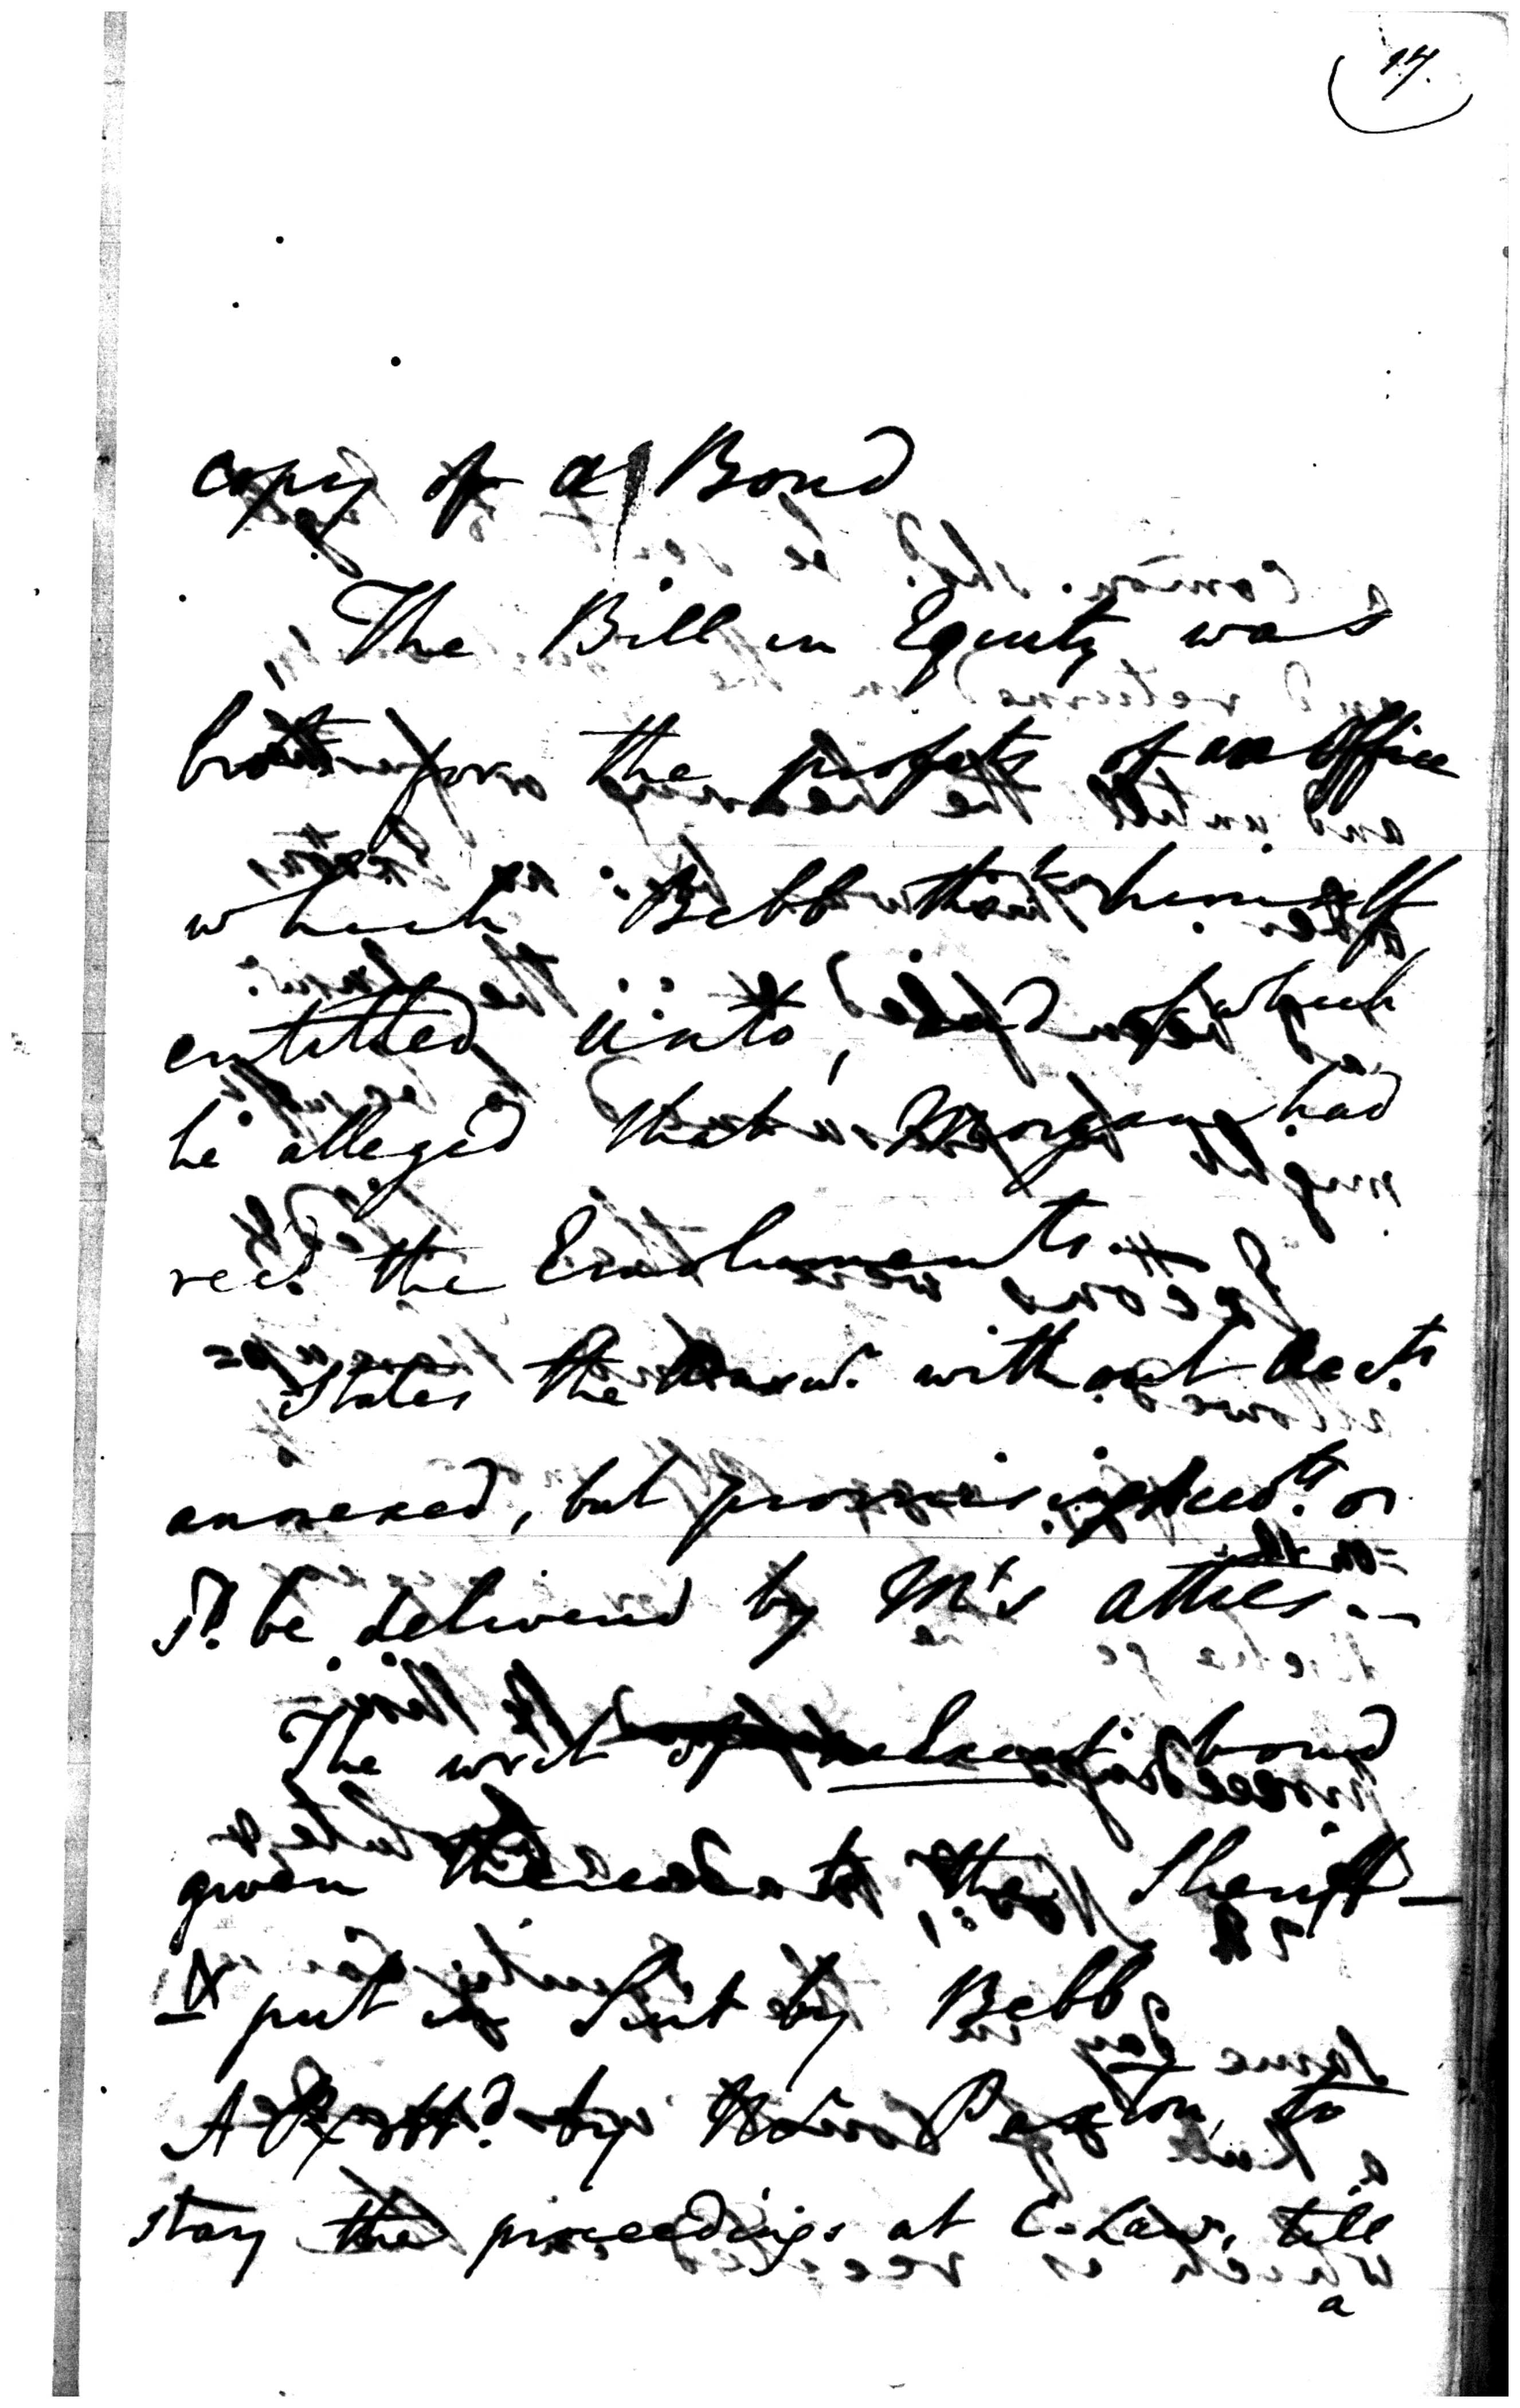 14.
copy of a Bond
The Bill in Equity was
bro't for the profits of an Office
which Bebb tho't himself
entitled unto, and of which
he alleg'd that Morgan had
rec.d the Emoluments.
States the Answ.r without Acc.ts
annexed, but promising Acc.ts or
s.d be delivered by M's Atties. —
The writ of ne Exeat, bond
given to the Sheriff —
& put in Suit by Bebb
A by Paxton, to
stay the proceedings at C. Law, till
a